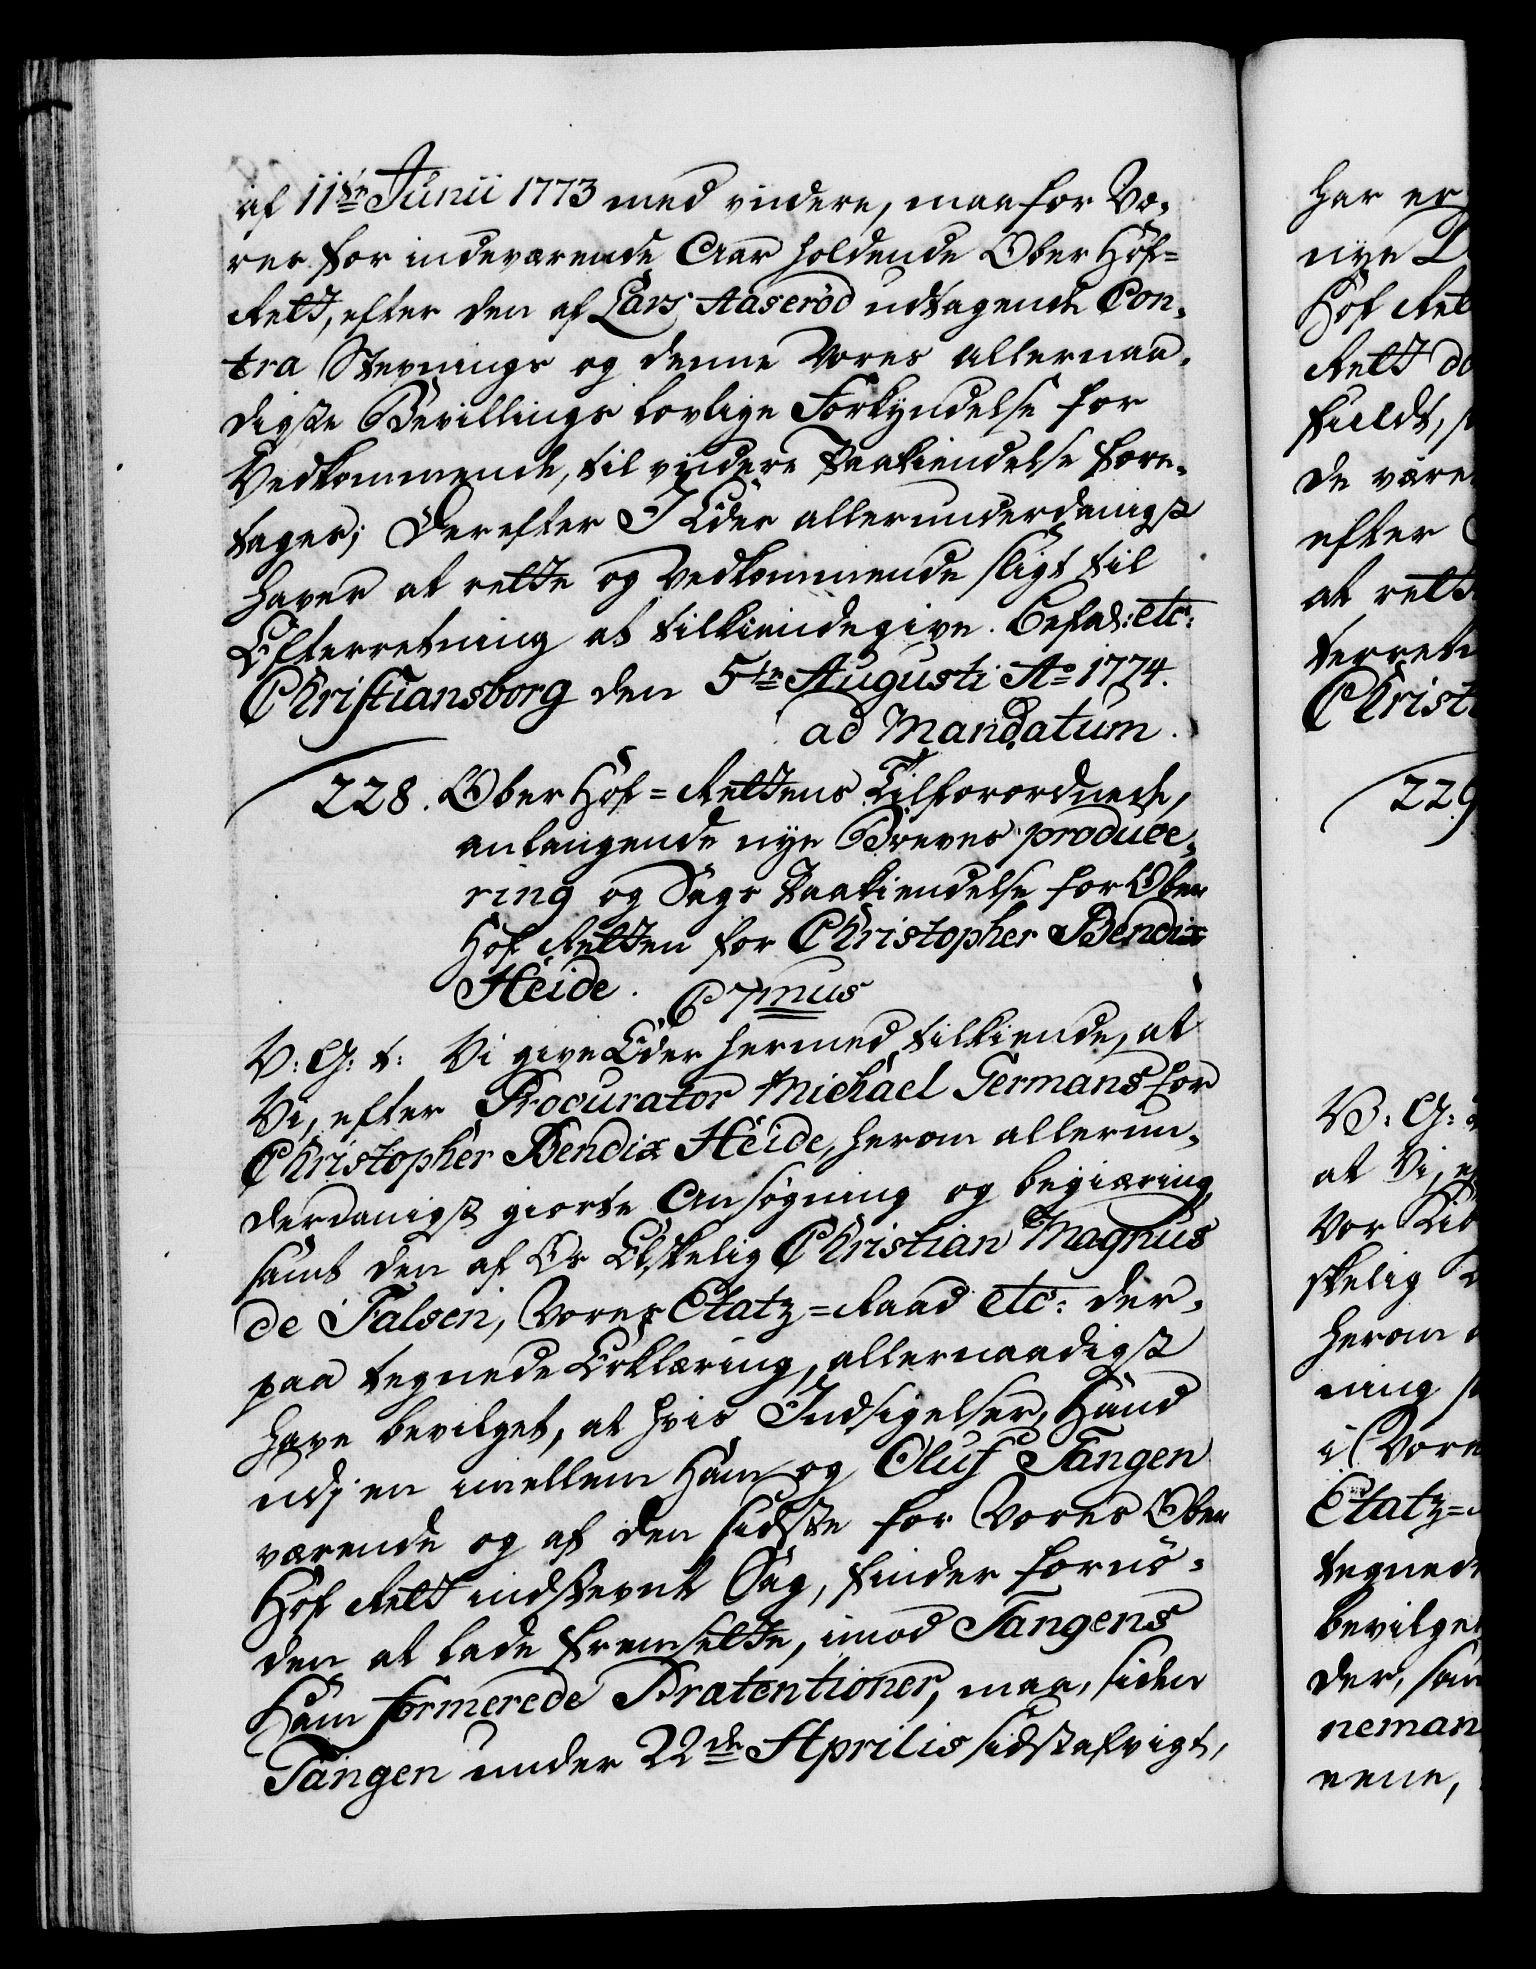 af 11te Junii 1773 med videre, maa for Vo-
res for indeværende Aar holdende Ober Hof-
Rett, efter den af Lars Aaseröd udtagende Con-
tra Stevnings og denne Vores allernaa-
digste Bevillings lovlige Forkyndelse for
Vedkommende, til videre Paakiendelse fore-
tages; Derefter I Eder allerunderdanigst
haver at rette og Vedkommende sligt til
Efterretning at tilkiendegive. Befal: etc:
Christiansborg den 5te Augusti Ao 1774.
ad Mandatum.
228. Ober Hof-Rettens Tilforordnede,
anlangende nye Breves produce-
ring og Sags Paakiendelse for Ober
Hof Retten for Christopher Bendix
Heide. C 7mus
V: G: t: Vi give Eder hermed tilkiende, at
Vi, efter Procurator Michael Germans for
Christopher Bendix Heide, herom allerun-
derdanigst giorte Ansögning og begiæring,
samt den af Os Elskelig Christian Magnus
de Falsen, Vores Etatz-Raad etc: der-
paa tegnede Erklæring, allernaadigst
have bevilget, at hvis Indsigelser, Hand
udj en imellem Ham og Oluf Tangen
værende og af den sidste for Vores Ober
Hof Rett indstevnt Sag, finder fornö-
den at lade fremsette, imod Tangens
Ham formerede Prætentioner, maa, siden
Tangen under 22de Aprilis sidstafvigt,
har er
nye
Hof Ret
Rett
fuldt,
de være
efter
at rett
terretn
Christ
229
V: G:
at Vi, e
Vor
skelig
herom
ning
i Vore
Etatz-
tegned
bevilget
der, sam
neman
eene,